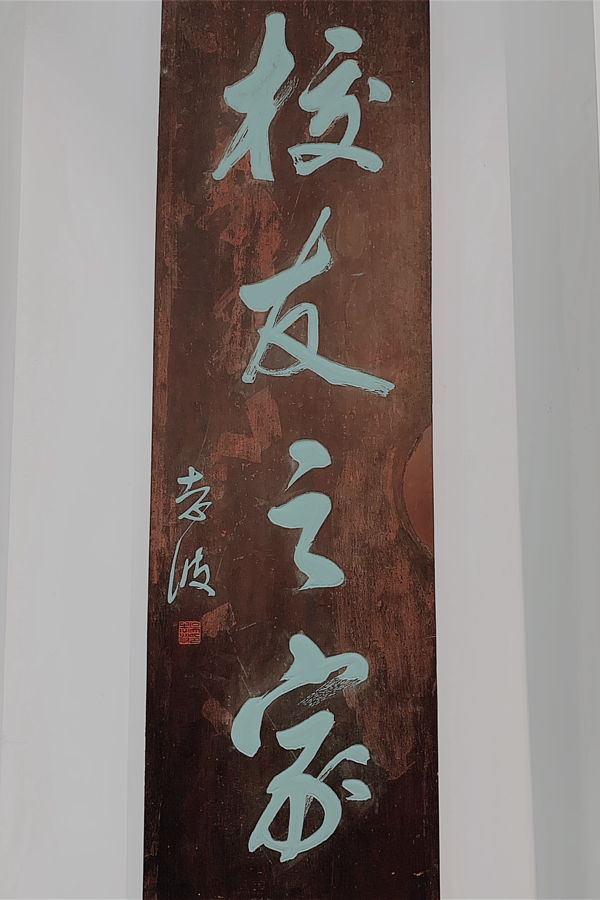 校友之家
孝波